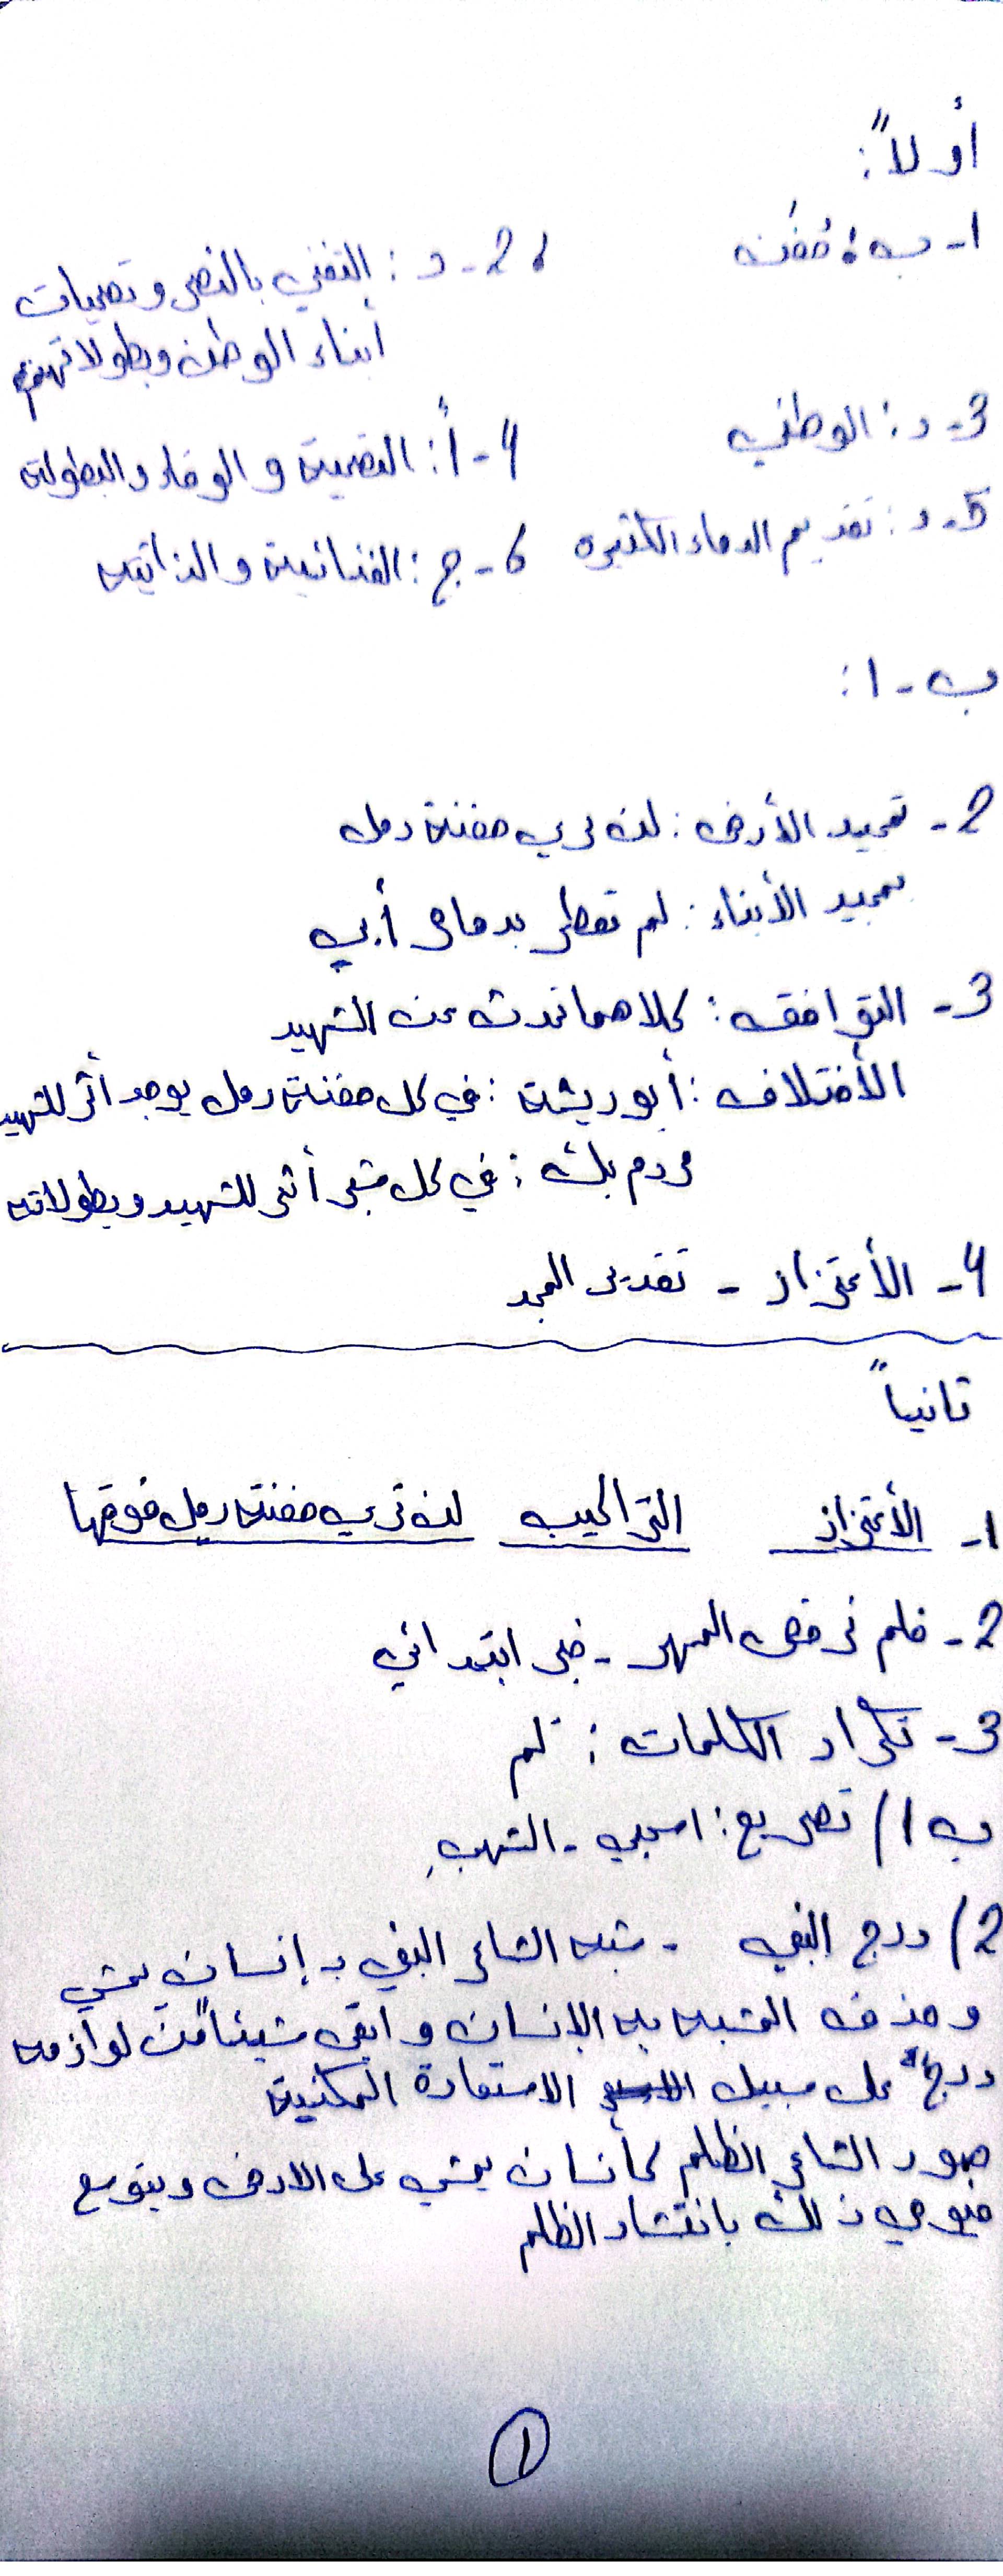 أولاً:
1- ب: خفف
2- د: التغني بالنصر وتضحيات
أبناء الوطن وبطولاتهم
3- د: الوطني
4- أ: التضحية والوفاء والبطولة
5- د: تقديم الدماء الكثيرة
6- ج: الغنائية والذاتية
ب-1:
2- تمجيد الأرض: لن تري حفنة رمل
تمجيد الأبناء: لم تعطر بدما حر أبي
3- التوافق: كلاهما تحدث عن الشهيد
الأختلاف: أبو ريشة: في كل حفنة رمل يوجد أثر للشهيد
مردم بك: في كل شبر أثر للشهيد وبطولاته
4- الأعتزاز - تقدير المجد
ثانياً
1- الأعتزاز التراكيب لن تري حفنة رمل فوقها
2- فلم ترخص المهر - خبر ابتدائي
3- تكرار الكلمات: لم
ب 1/ تصريع: اسحبي - الشهبِ
2/ درج البغي - شبه الشاعر البغي بـ إنسان يمشي
وحذف المشبه به الإنسان وابقى شيئاً من لوازمه
درج" على سبيل الاستعارة المكنية
صور الشاعر الظلم كأنسان يمشي على الارض ويتوسع
فيوحي ذلك بانتشار الظلم
1